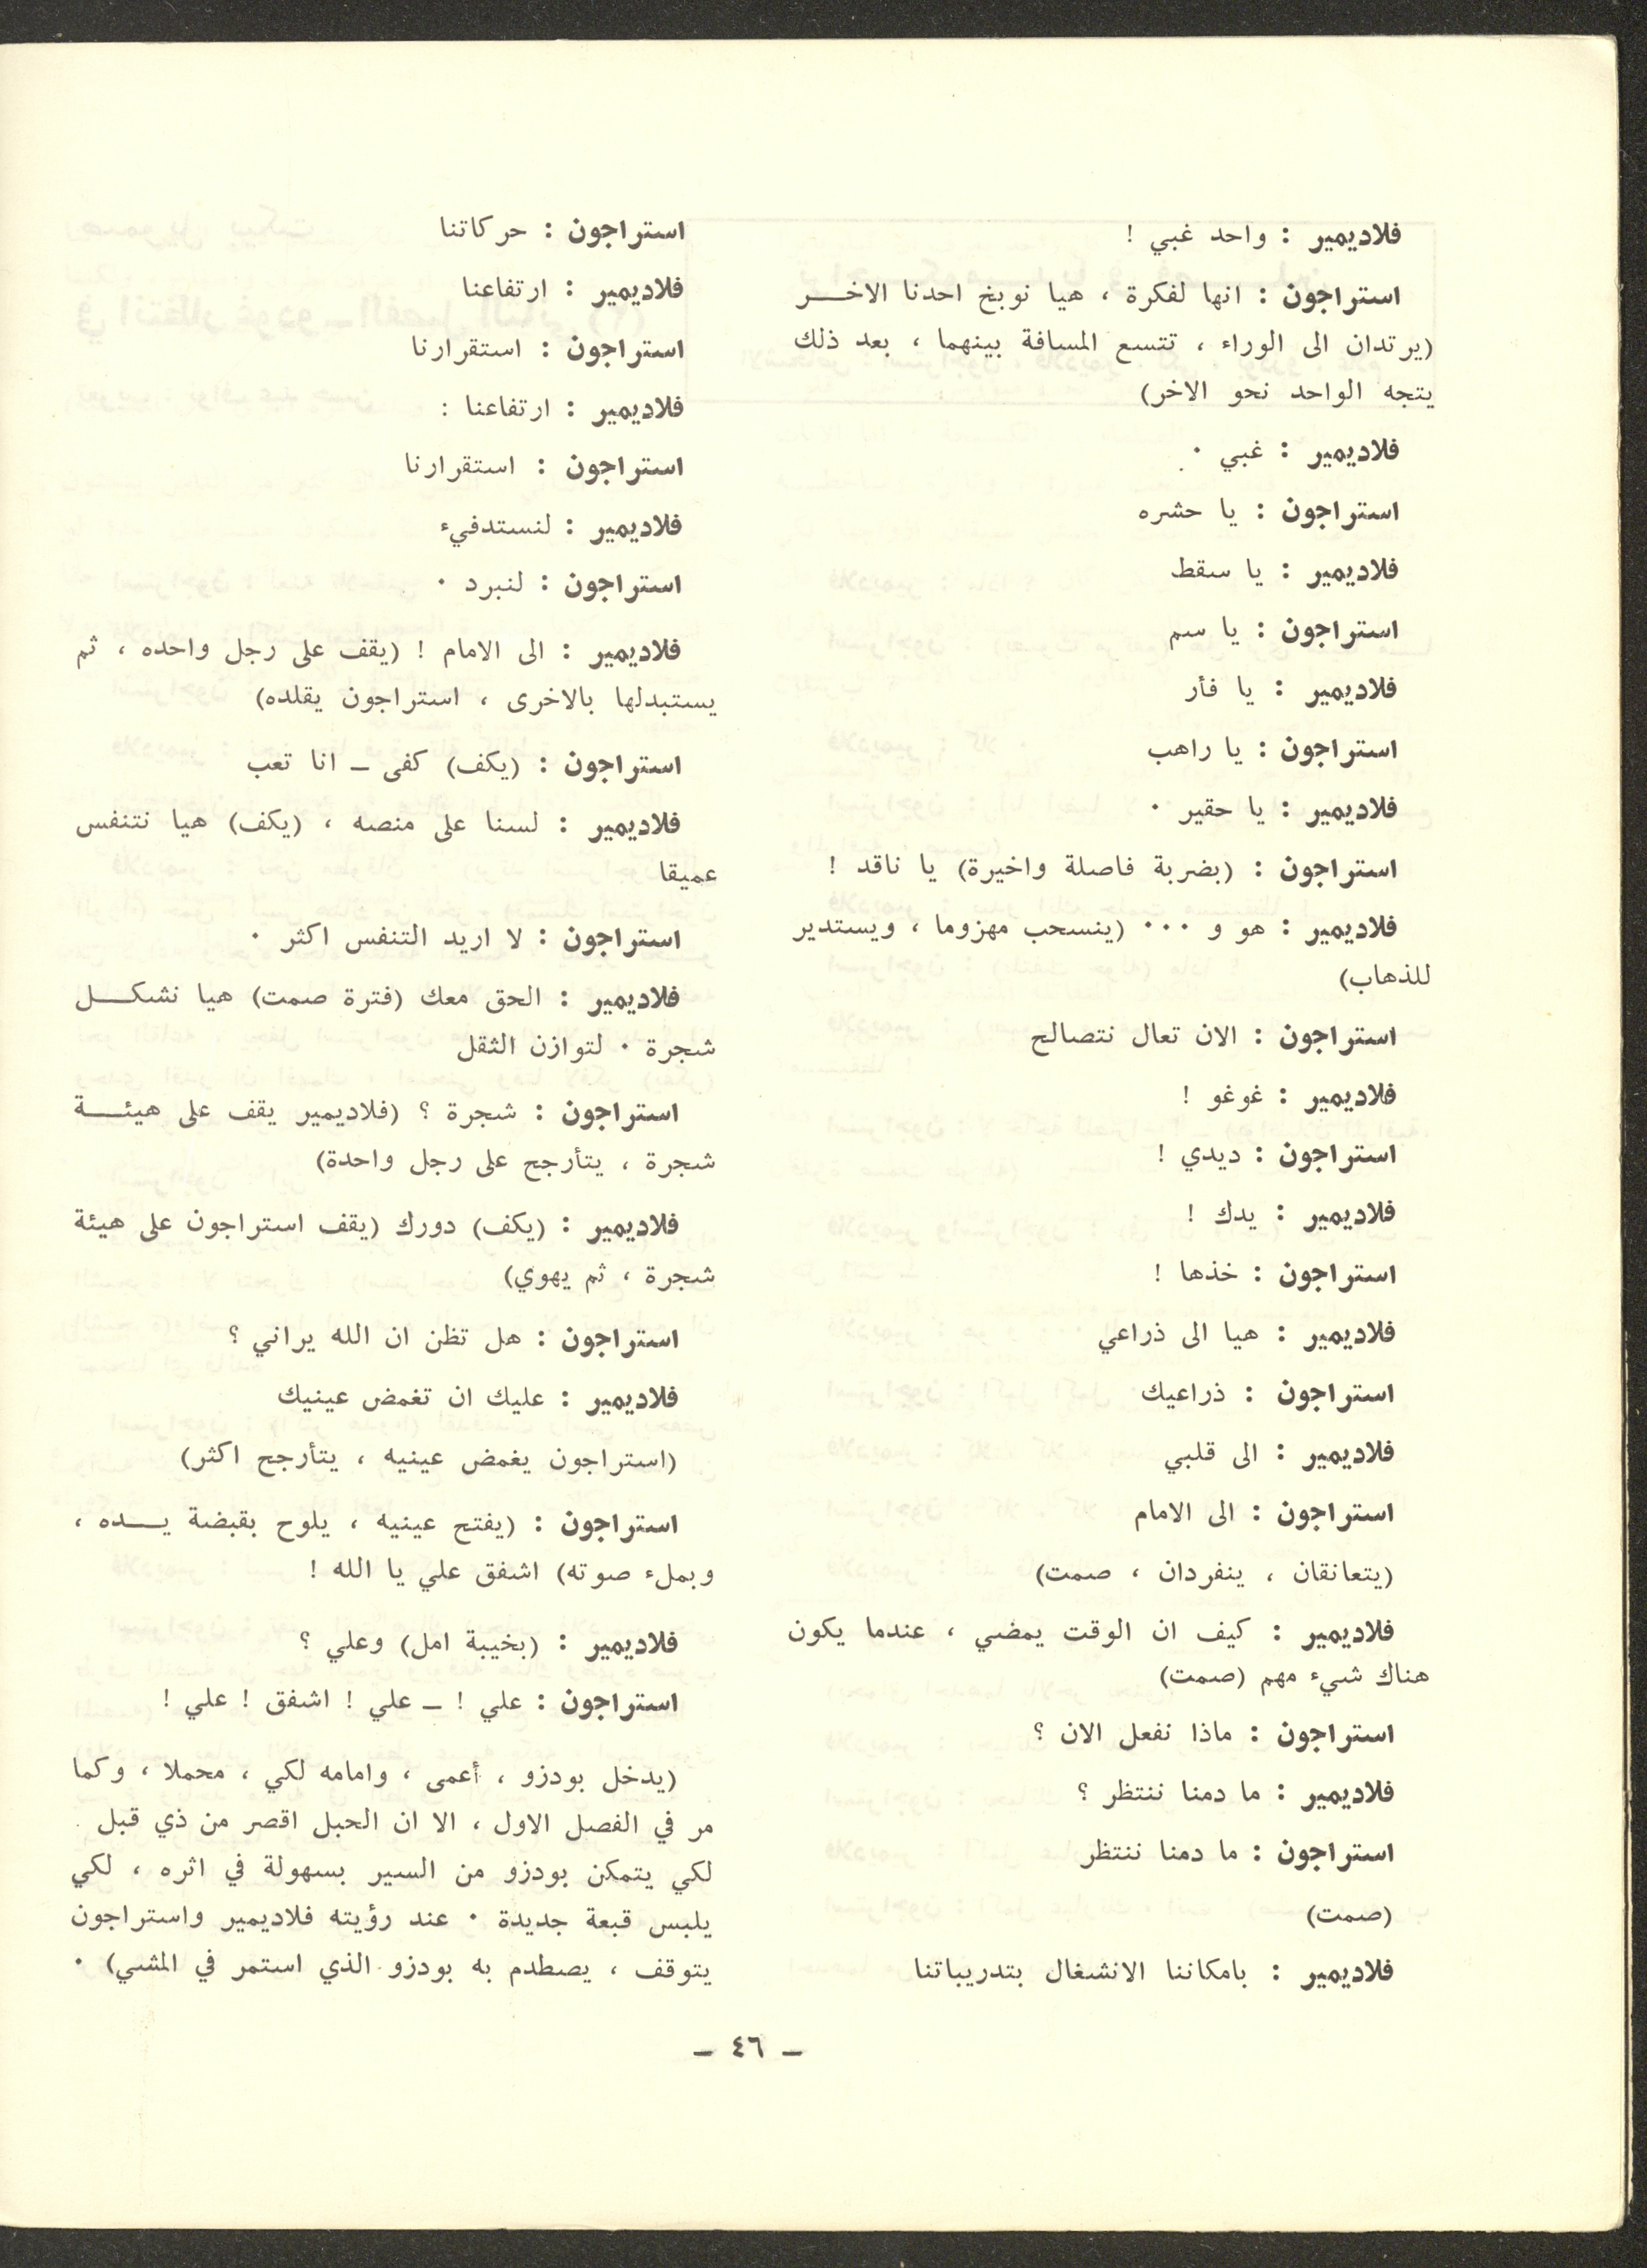 فلاديمير : واحد غبي !
استراجون : انها لفكرة ، هيا نوبخ احدنا الاخـــر
(يرتدان الى الوراء ، تتسع المسافة بينهما ، بعد ذلك
يتجه الواحد نحو الاخر)
فلاديمير : غبي ٠
استراجون : يا حشره
فلاديمير : يا سقط
استراجون : يا سم
فلاديمير : يا فأر
استراجون : يا راهب
فلاديمير : يا حقير ٠
استراجون : (بضربة فاصلة واخيرة) يا ناقد !
فلاديمير : هو و ٠٠٠ (ينسحب مهزوما ، ويستدير
للذهاب)
استراجون : الان تعال نتصالح
فلاديمير : غوغو !
استراجون : ديدي !
فلاديمير : يدك !
استراجون : خذها !
فلاديمير : هيا الى ذراعي
استراجون : ذراعيك
فلاديمير : الى قلبي
استراجون : الى الامام
(يتعانقان ، ينفردان ، صمت)
فلاديمير : كيف ان الوقت يمضي ، عندما يكون
هناك شيء مهم (صمت)
استراجون : ماذا نفعل الان ؟
فلاديمير : ما دمنا ننتظر ؟
استراجون : ما دمنا ننتظر
(صمت)
فلاديمير : بامكاننا الانشغال بتدريباتنا
استراجون : حركاتنا
فلاديمير : ارتفاعنا
استراجون : استقرارنا
فلاديمير : ارتفاعنا :
استراجون : استقرارنا
فلاديمير : لنستدفيء
استراجون : لنبرد ٠
فلاديمير : الى الامام ! (يقف على رجل واحده ، ثم
يستبدلها بالاخرى ، استراجون يقلده)
استراجون : (يكف) كفى ـ انا تعب
فلاديمير : لسنا على منصه ، (يكف) هيا نتنفس
عميقا
استراجون : لا اريد التنفس اكثر ٠
فلاديمير : الحق معك (فترة صمت) هيا نشكـــل
شجرة ٠ لتوازن الثقل
استراجون : شجرة ؟ (فلاديمير يقف على هيئـــة
شجرة ، يتأرجح على رجل واحدة)
فلاديمير : (يكف) دورك (يقف استراجون على هيئة
شجرة ، ثم يهوي)
استراجون : هل تظن ان الله يراني ؟
فلاديمير : عليك ان تغمض عينيك
(استراجون يغمض عينيه ، يتأرجح اكثر)
استراجون : (يفتح عينيه ، يلوح بقبضة يـــده ،
وبملء صوته) اشفق علي يا الله !
فلاديمير : (بخيبة امل) وعلي ؟
استراجون : علي ! ـ علي ! اشفق ! علي !
(يدخل بودزو ، أعمى ، وامامه لكي ، محملا ، وكما
مر في الفصل الاول ، الا ان الحبل اقصر من ذي قبل
لكي يتمكن بودزو من السير بسهولة في اثره ، لكي
يلبس قبعة جديدة ٠ عند رؤيته فلاديمير واستراجون
يتوقف ، يصطدم به بودزو الذي استمر في المشي) ٠
ـ ٤٦ ـ